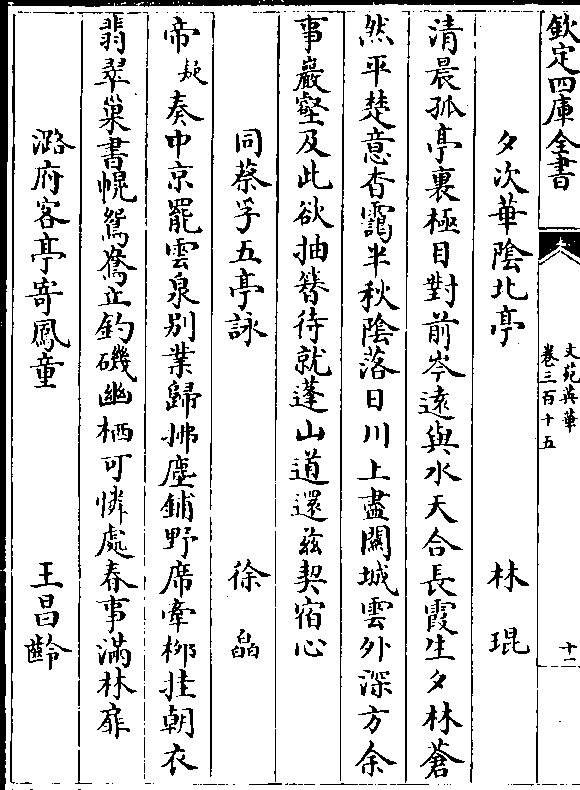 欽定四庫全書
文苑英華
卷三百十五
十二
夕次華陰北亭 林琨
清晨孤亭裏極目對前岑遠與水天合長霞生夕林蒼
然平楚意杳靄半秋陰落日川上盡關城雲外深方余
事巖壑及此欲抽簪待就蓬山道還兹契宿心
同蔡孚五亭詠 徐晶
帝疑奏中京罷雲泉别業歸拂塵鋪野席牽柳挂朝衣
翡翠巢書幌鴛鴦立釣磯幽栖可憐處春事滿林扉
潞府客亭寄鳳童 王昌齡